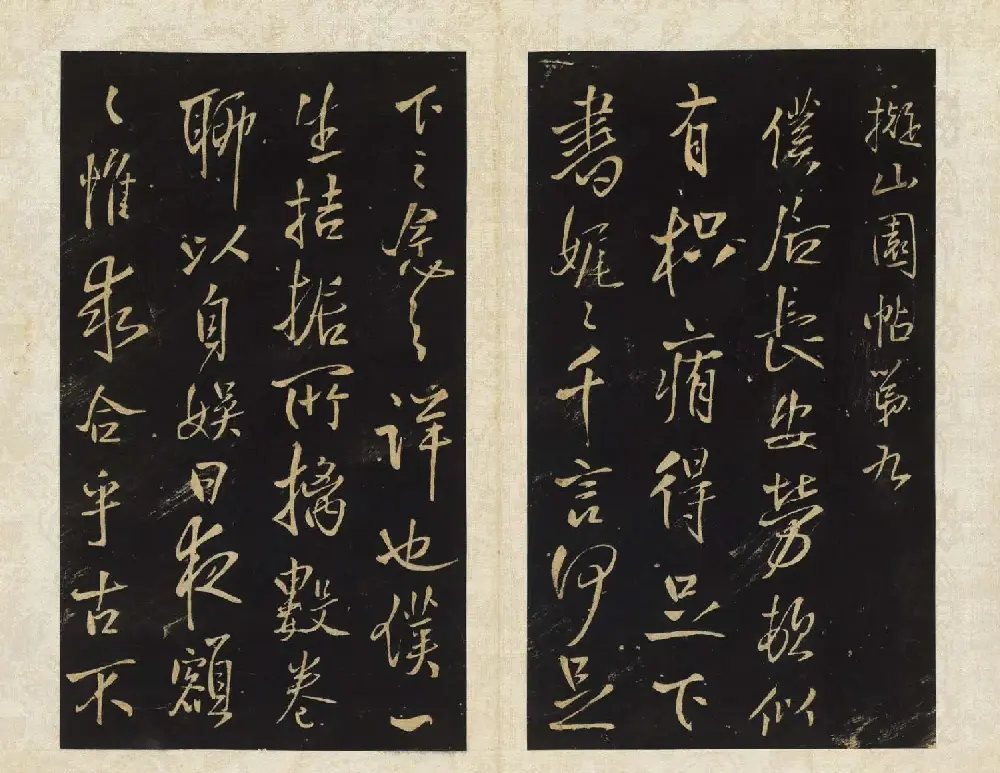 擬山園帖第九
僕居長安勞頓似
有积得足下
書娓々千言何足
下之念之詳也僕一
生拮据所摘數卷
聊以自娛日夜額
々惟求合乎古不